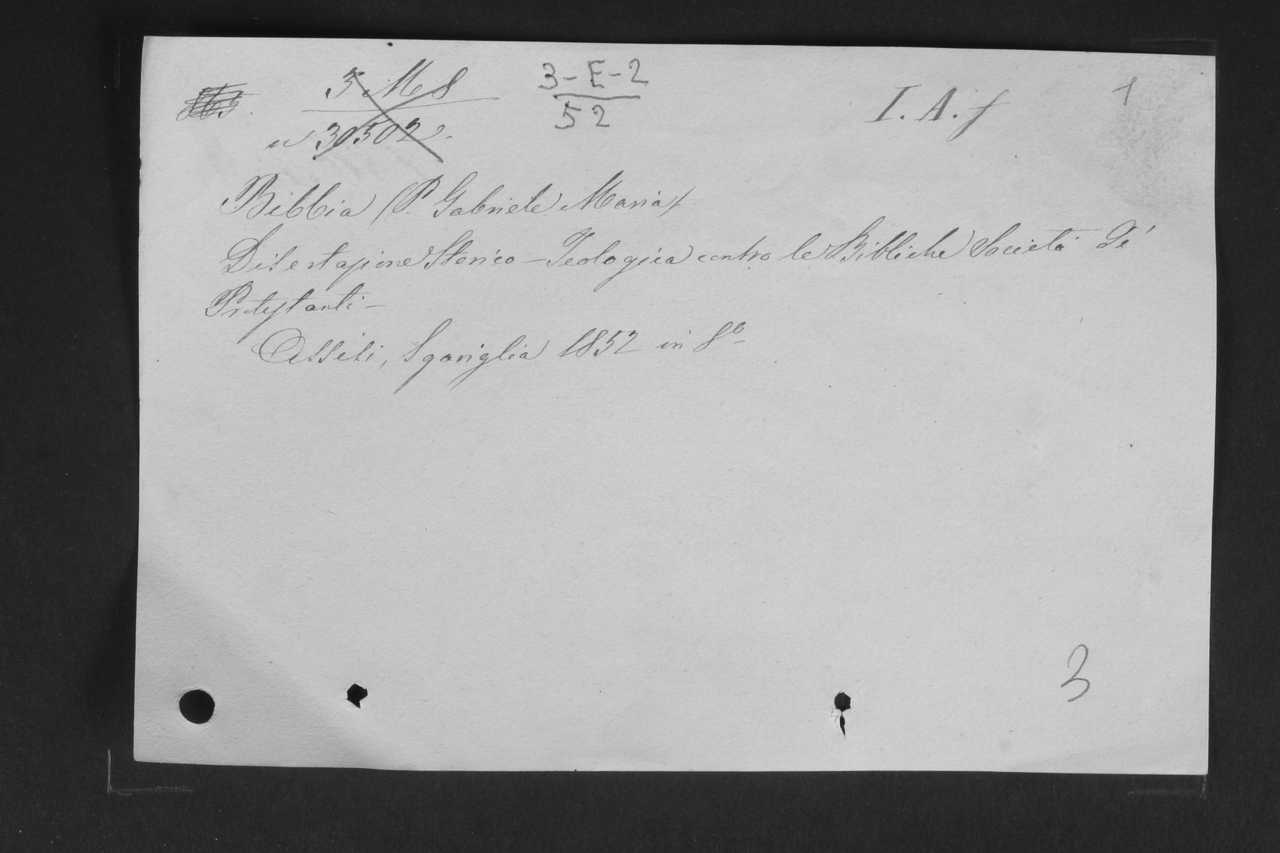 3 M 8
3-E-2
I. A. f
1
n° 305022
52
Bibbia (P. Gabriele Maria)
Dissertazione Storico-Teologica contro le Bibliche Società de'
Protestanti-
Assisi, Sgariglia 1852 in 8°-
3